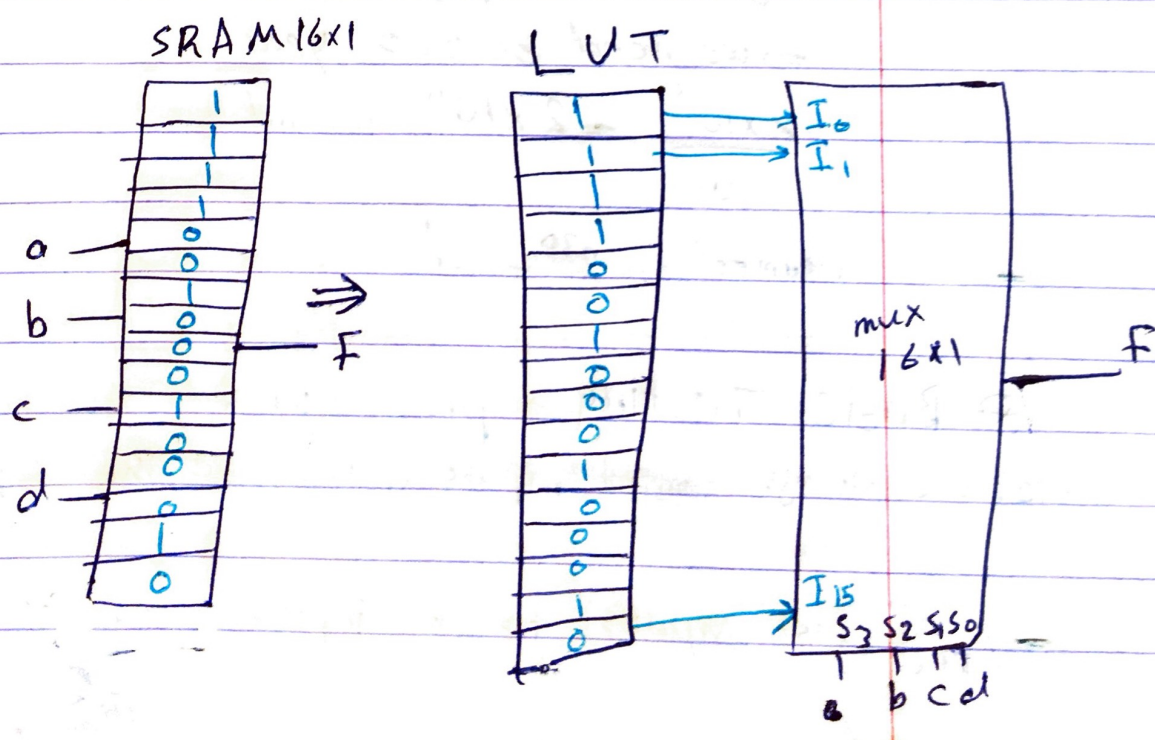 SRAM 16x1
LUT
1
1
1
1
0
0
1
0
0
0
1
0
0
0
1
0
a
b
c
d
F
⇒
1
1
1
1
0
0
1
0
0
0
1
0
0
0
1
0
I0
I1
mux
16x1
I15
S3 S2 S1 S0
a b c d
F